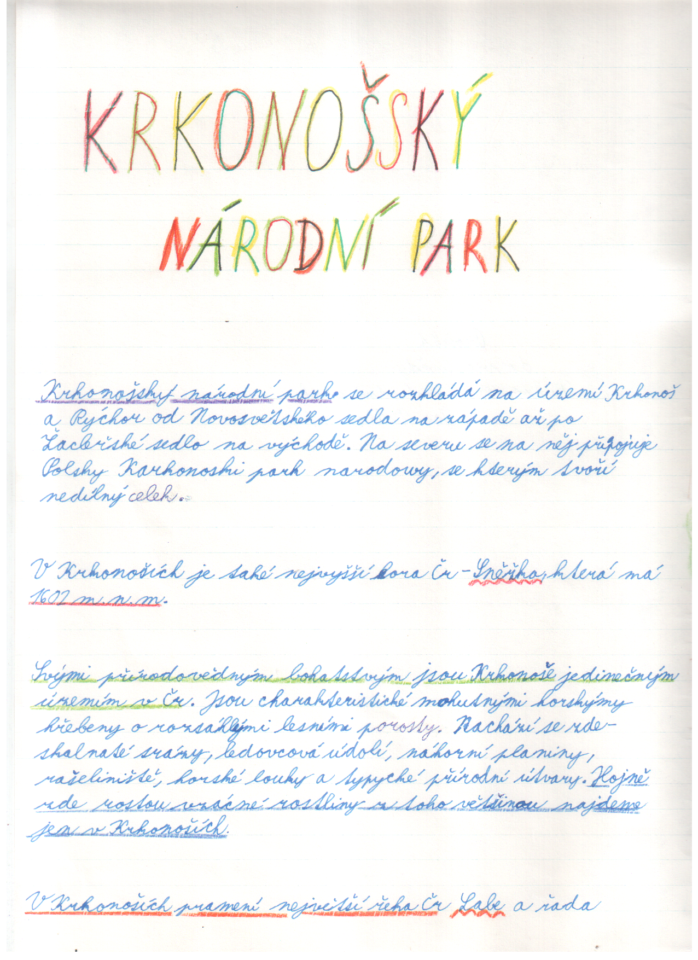 KRKONOŠSKÝ
NÁRODNÍ PARK
Krkonošský národní park se rozkládá na území Krkonoš
a Rýchor od Novosvětského sedla na západě až po
Žacleřské sedlo na východě. Na severu se na něj připojuje
Polsky Karkonoski park narodowy, se kterým tvoří
nedílný celek.
V Krkonoších je také nejvyšší hora Čr - Sněžka, která má
1602 m.n.m.
Svými přírodovědným bohatstvým jsou Krkonoše jedinečným
územím v Čr. Jsou charakteristické mohutnými horskými
hřebeny o rozsáhlými lesními porosty. Nachází se zde
skalnaté srázy, ledovcová údolí, náhorní planiny,
rašeliniště, horské louky a typyché přírodní útvary. Hojně
zde rostou vzácné rostliny z toho většinou najdeme
jen v Krkonoších.
V Krkonoších pramení největší řeka Čr Labe a řada